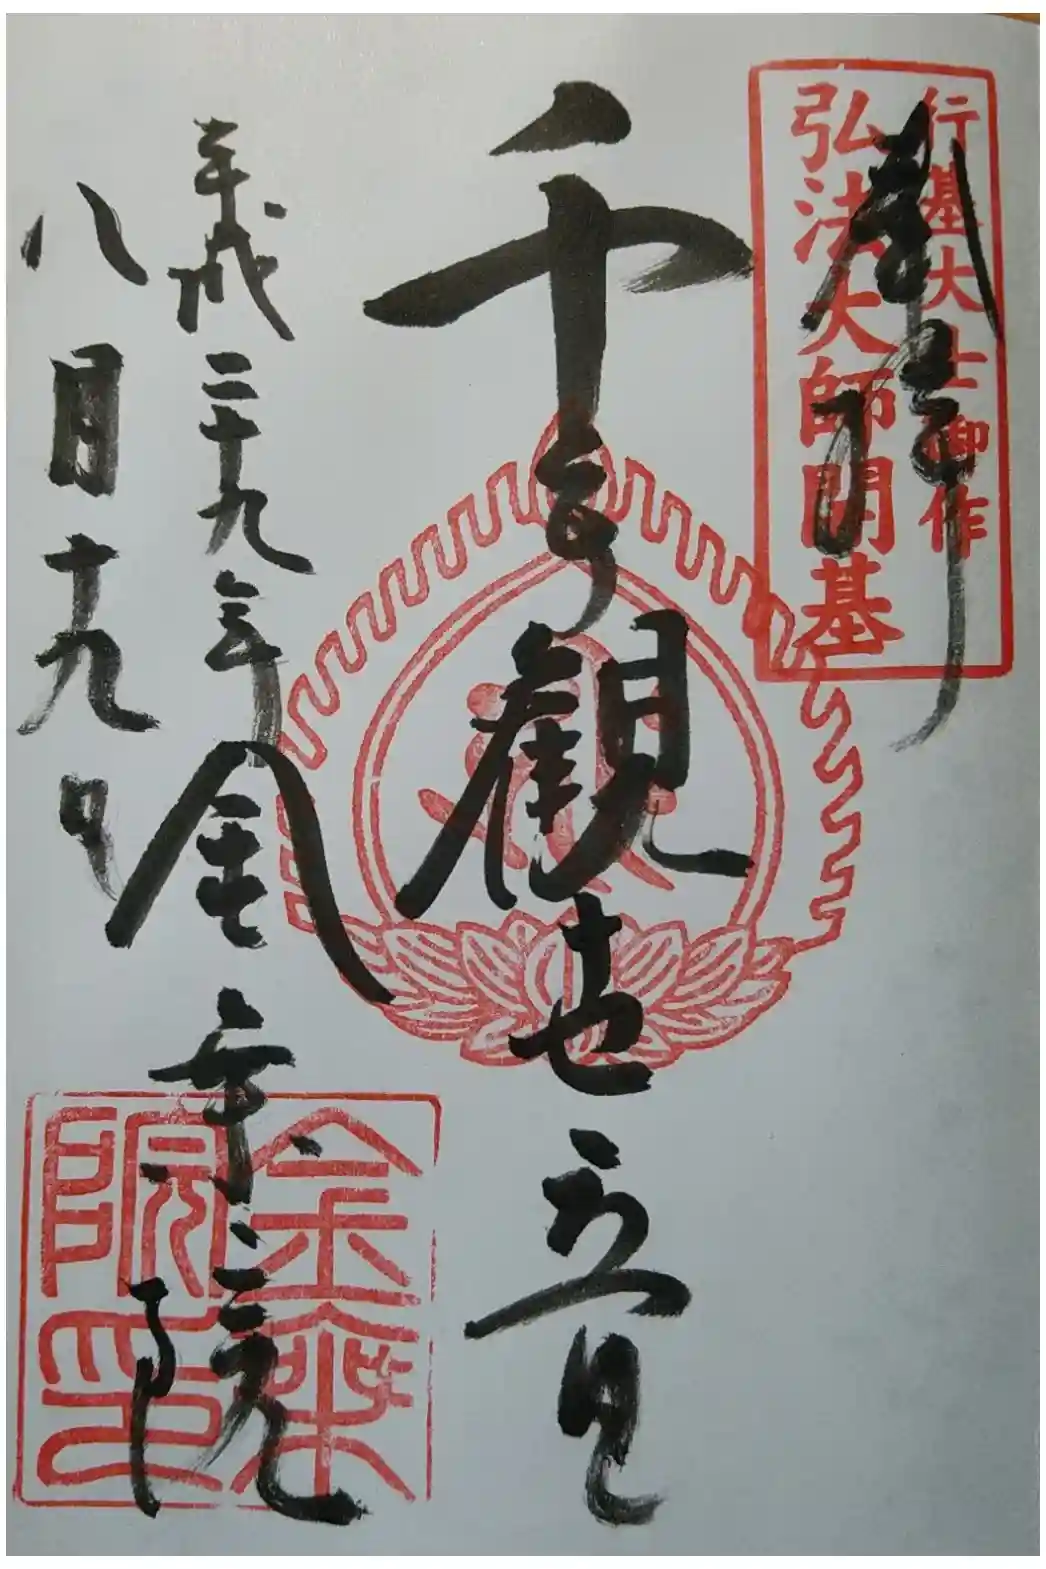 奉拝
行基大士御作
弘法大師開基
千手観世音
平成二十九年
八月十九日
金乗院
金乗院印